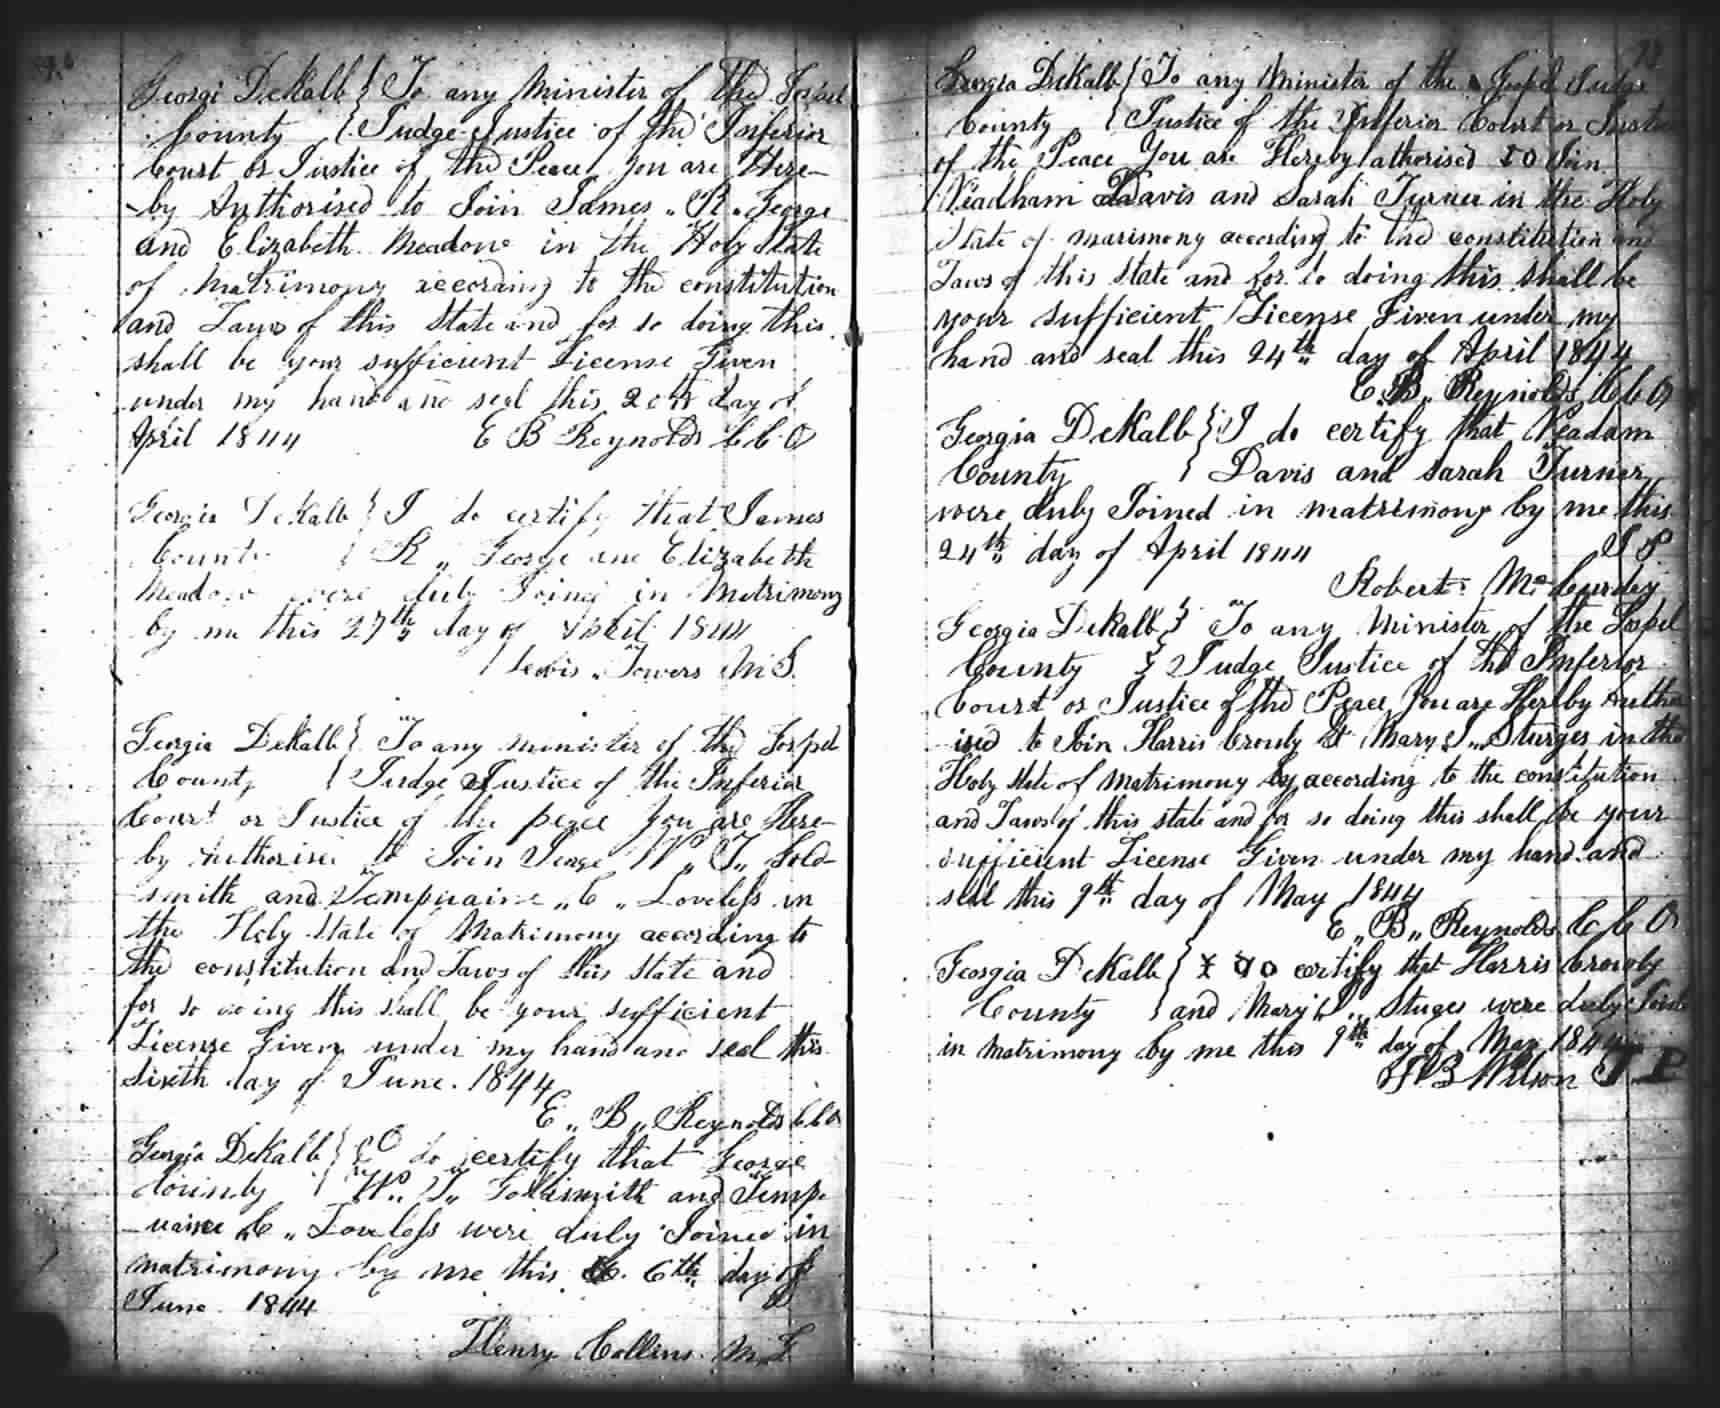 Georgi DeKalb } To any Minister of the Gospel
County { Judge Justice of the Inferior
Court or Justice of the Peace you are Here-
-by Authorised to Join James „ R „ George
and Elizabeth Meadow in the Holy State
of Matrimony according to the constitution
and Laws of this State and for so doing this
shall be your sufficient License Given
under my hand and seal this 20th day of
April 1844 E B Reynolds C C O
Georgia DeKalb } I do certify that James
County { R „ George and Elizabeth
Meadow were duly Joined in Matrimony
by me this 27th day of April 1844
Lewis „ Towers M G.
Georgia DeKalb } To any minister of the Gospel
County { Judge Justice of the Inferior
Court or Justice of the peace you are Here-
by Authorised to Join George W„ T„ Gold-
-smith and Tempuaine „ C „ Loveless in
the Holy State of Matrimony according to
the constitution and Laws of this State and
for so doing this shall be your sufficient
License Given under my hand and seal this
Sixth day of June. 1844
E „ B „ Reynolds C C O
Georgia DeKalb } I do certify that George
County } W„ T„ Goldsmith and Temp-
-uaince C „ Loveless were duly Joined in
matrimony by me this 6th day of
June 1844
Henry Collins M. G.
Georgia DeKalb } To any Minister of the Gospel Judge
County { Justice of the Inferior Court or Justice
of the Peace You are Hereby athorised to Join
Neadham Davis and Sarah Turner in the Holy
State of marimony according to the constitution and
Laws of this State and for so doing this shall be
your sufficient License Given under my
hand and seal this 24th day of April 1844
E. B. Reynolds C C O
Georgia DeKalb } I do certify that Neadam
County { Davis and Sarah Turner
were duly Joined in matrimony by me this
24th day of April 1844 J P
Robert Mc Curdey
Georgia DeKalb } To any Minister of the Gospel
County } Judge Justice of the Inferior
Court or Justice of the Peace You are Hereby Autho
-ised to Join Harris Crowly & Mary J„ Sturges in the
Holy State of Matrimony by according to the constitution
and Laws of this state and for so doing this shall be your
sufficient License Given under my hand and
seal this 9th day of May 1844
E „ B „ Reynolds C C O
Georgia DeKalb } I do certify that Harris Crowly
County } and Mary J„ Stuges were duly Joind
in matrimony by me this 9th day of May 1844
B Wilson J P